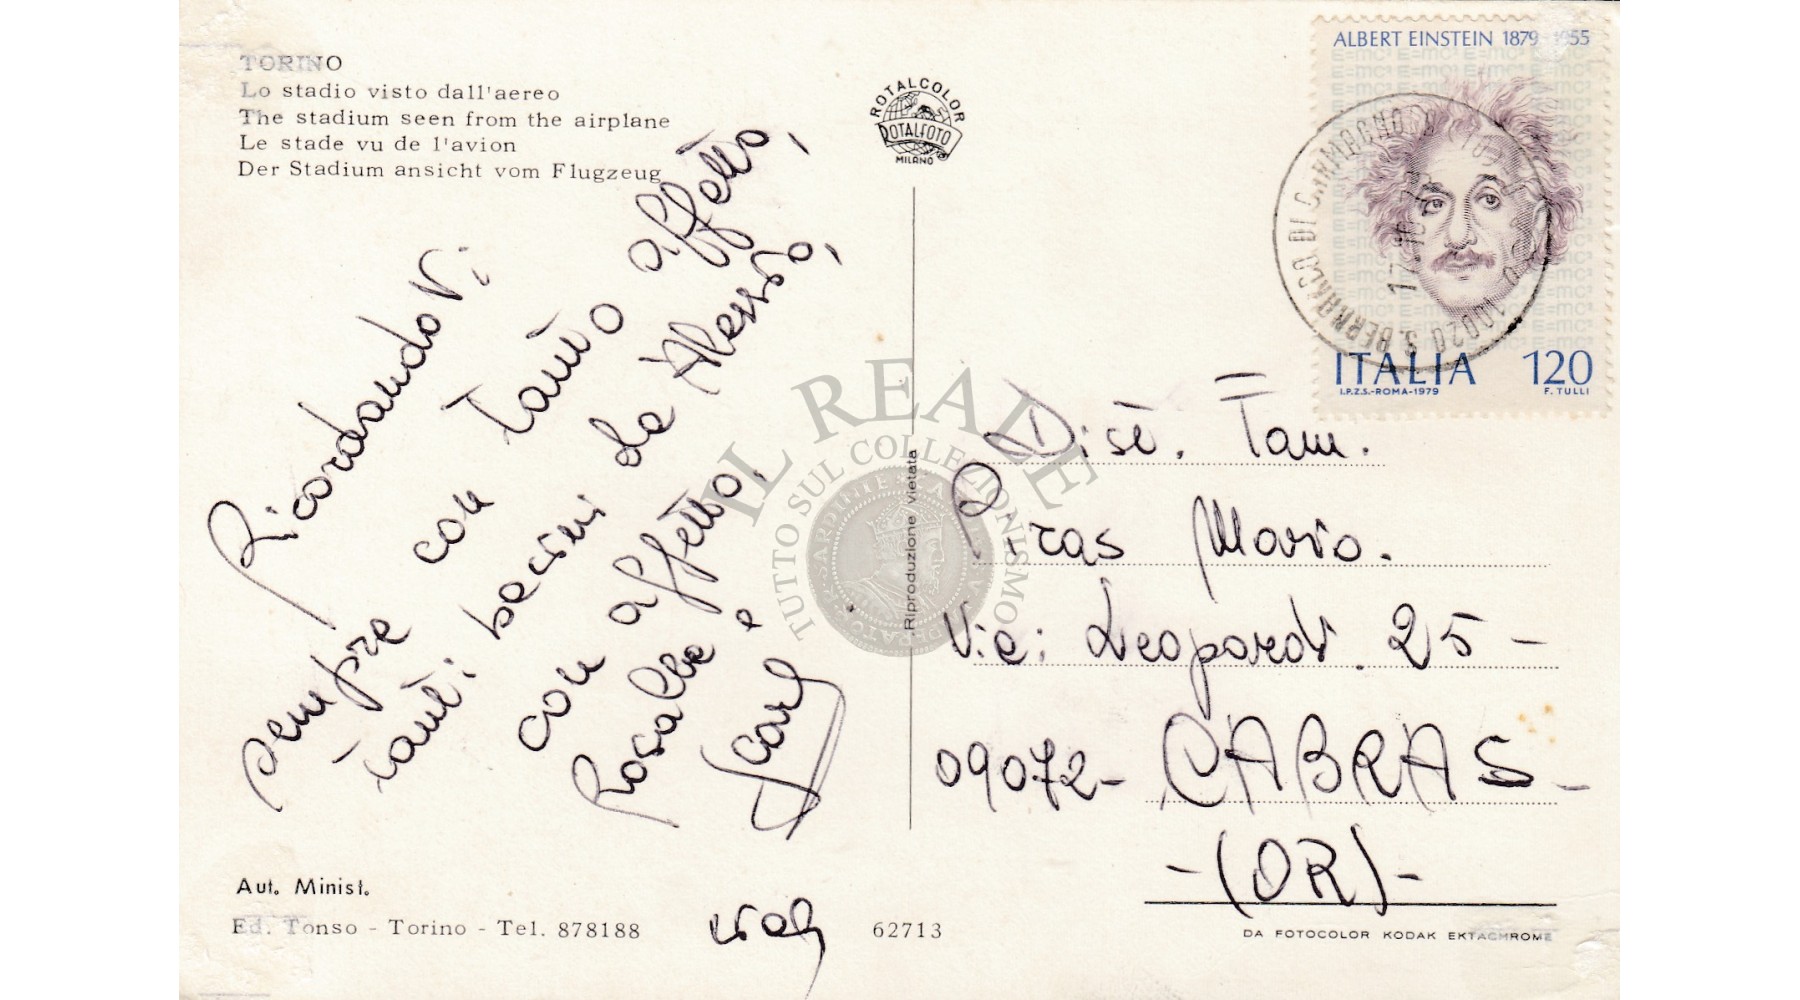 TORINO
Lo stadio visto dall'aereo
The stadium seen from the airplane
Le stade vu de l'avion
Der Stadium ansicht vom Flugzeug
ROTALCOLOR
ROTALFOTO
MILANO
ALBERT EINSTEIN 1879 1955
ITALIA 120
I.P.Z.S.-ROMA-1979 F. TULLI
10020 S. BERNARDO DI CARMAGNOLA
RicordandoVi
sempre con tanto affetto,
tanti bacini da Alessio,
con affetto,
Rosalba e
IL REALE
TUTTO SUL COLLEZIONISMO
Riproduzione vietata
Dist. Fam.
Piras Mario.
Via: Leopardi. 25 -
09072- CABRAS -
-(OR)-
Aut. Minist.
Ed. Tonso - Torino - Tel. 878188
62713
DA FOTOCOLOR KODAK EKTACHROME